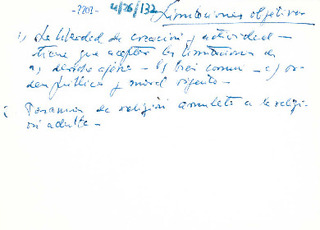 -2203- 4/26/132 Limitaciones objetivas
1) La libertad de creación y actividad —
tiene que aceptar las limitaciones de
a) derecho ajeno - b) bien común - c) or-
den público y moral vigente -
de religión a la religi-
ón adulta -